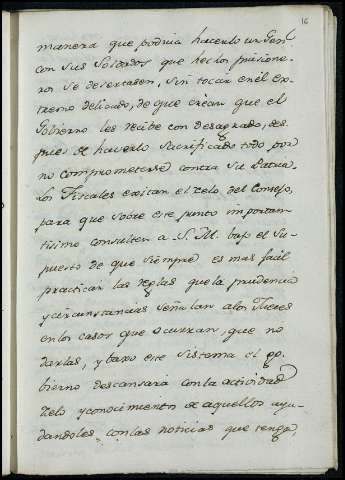 16
manera que podria hacerlo un Gen.l
con sus Soldados que hechos prisione-
ros se desertasen, sin tocar en el ex-
tremo delicado, de que crean que el
Gobierno les recibe con desagrado, des-
pues de haverlo sacrificado todo por
no comprometerse contra su Patria.
Los Fiscales exitan el zelo del Consejo,
para que sobre este punto importan-
tisimo consulten a S. M. bajo el su-
puesto de que siempre es mas facil
practicar las reglas que la prudencia
y circunstancias señalan a los Jueces
en los casos que ocurran, que no
darlas, y baxo este sistema el go-
bierno descansará con la actividad
zelo y conocimiento de aquellos ayu-
dandoles con las noticias que tenga,